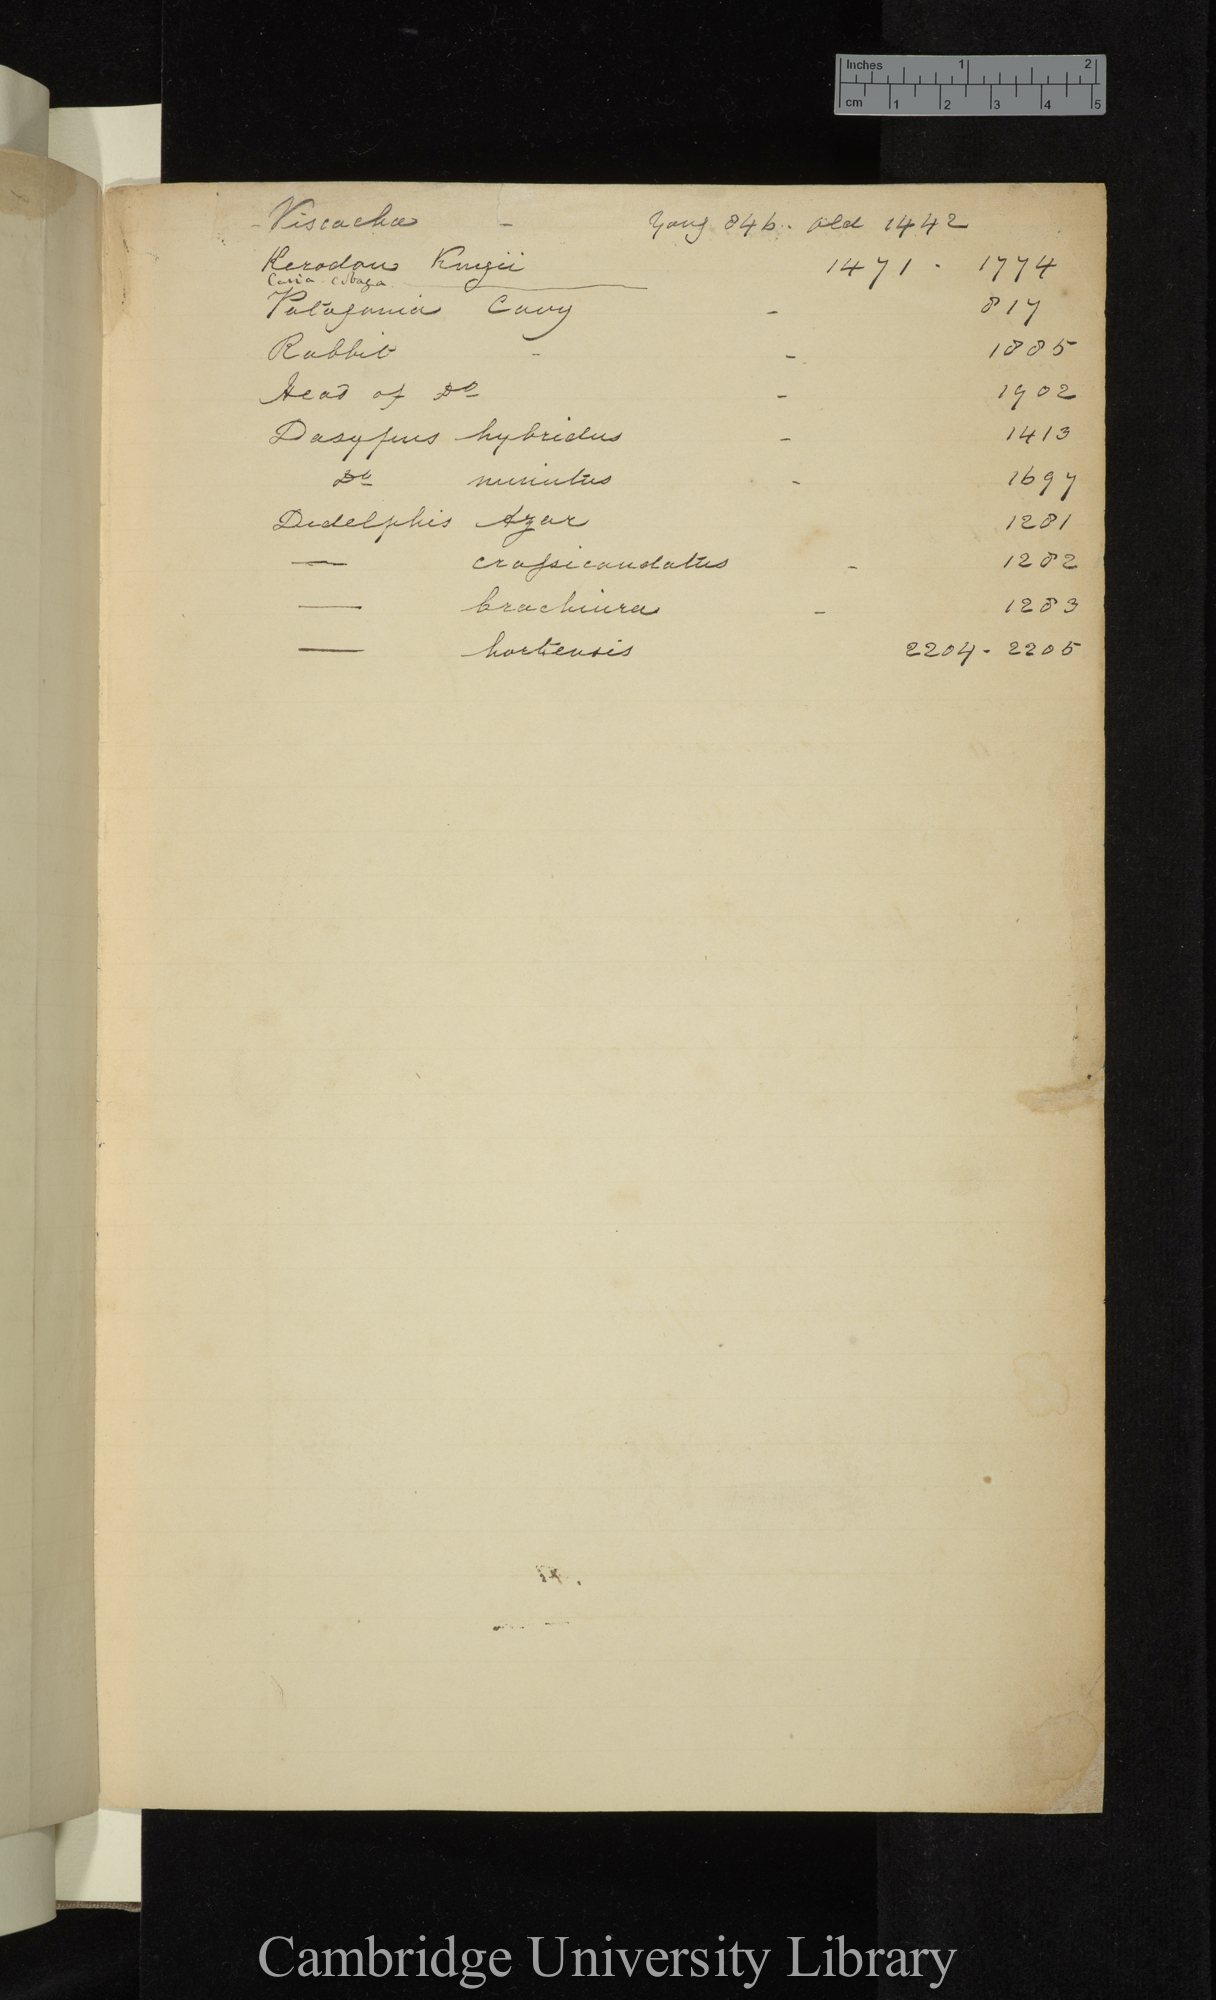 Inches 1 2
cm 1 2 3 4 5
Viscacha - Yong 846. old 1442
Kerodon Kingii 1471 - 1774
Cavia cobaya
Patagonia Cavy - 817
Rabbit - - 1885
Head of Do - 1902
Dasypus hybridus - 1413
Do minutus - 1697
Didelphis Azar 1281
— crassicaudatus - 1282
— brachiura - 1283
— hortensis 2204 - 2205
Cambridge University Library